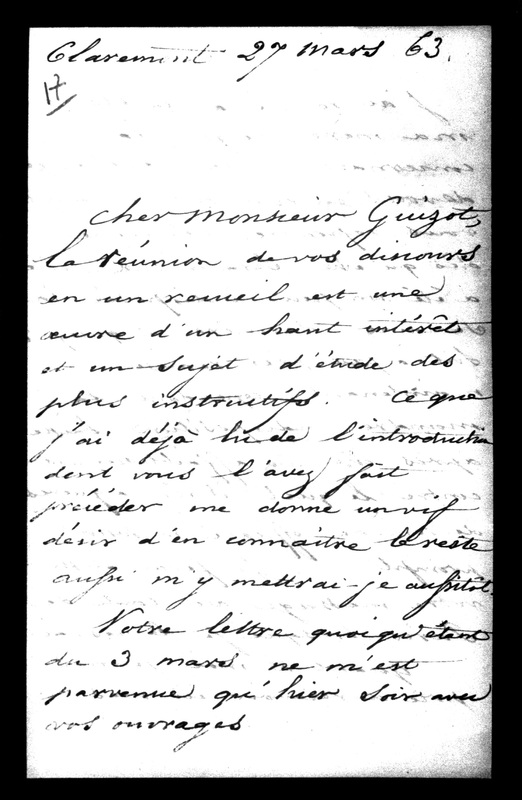 Claremont 27 mars 63.
17
Cher Monsieur Guizot,
la réunion de vos discours
en un recueil est une
œuvre d'un haut intérêt
et un sujet d'étude des
plus instructifs. Ce que
j'ai déjà lu de l'introduction
dont vous l'avez fait
précéder me donne un vif
désir d'en connaître le reste
aussi m'y mettrai-je aussitôt.
Votre lettre quoiqu'étant
du 3 mars ne m'est
parvenue qu'hier soir avec
vos ouvrages